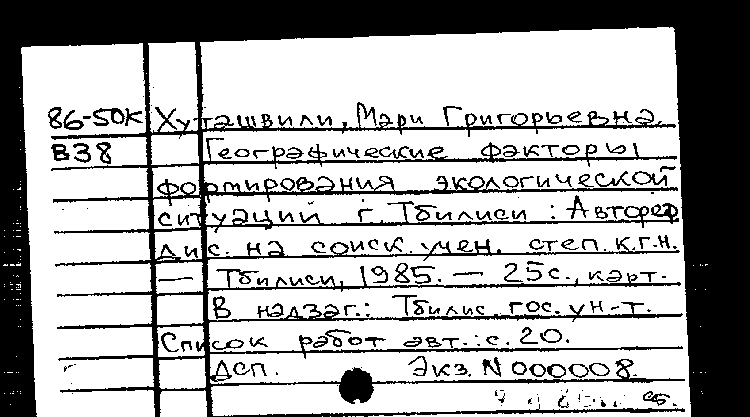 86-50к Хуташвили, Мари Григорьевна.
В38 Географические факторы
формирования экологической
ситуации г. Тбилиси : Автореф
дис. на соиск. учен. степ. к.г.н.
— Тбилиси, 1985. — 25с., карт.
В надзаг.: Тбилис. гос. ун-т.
Список работ авт.: с. 20.
Дсп. Экз. N 000008.